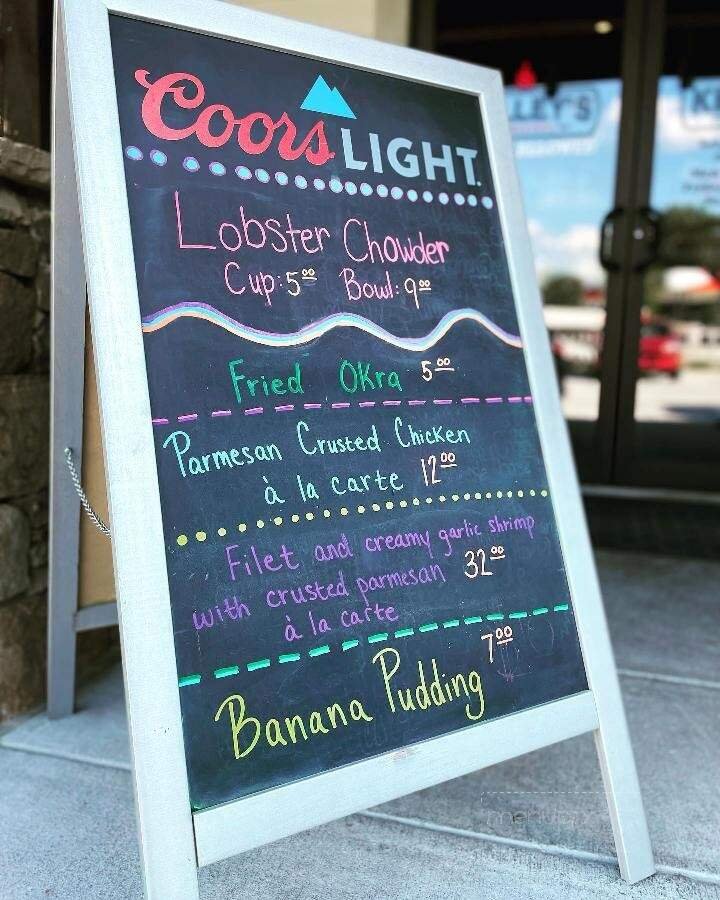 Coors LIGHT
Lobster Chowder
Cup: 5⁰⁰ Bowl: 9⁰⁰
Fried Okra 5⁰⁰
Parmesan Crusted Chicken
à la carte 12⁰⁰
Filet and creamy garlic shrimp
with crusted parmesan 32⁰⁰
à la carte
Banana Pudding 7⁰⁰